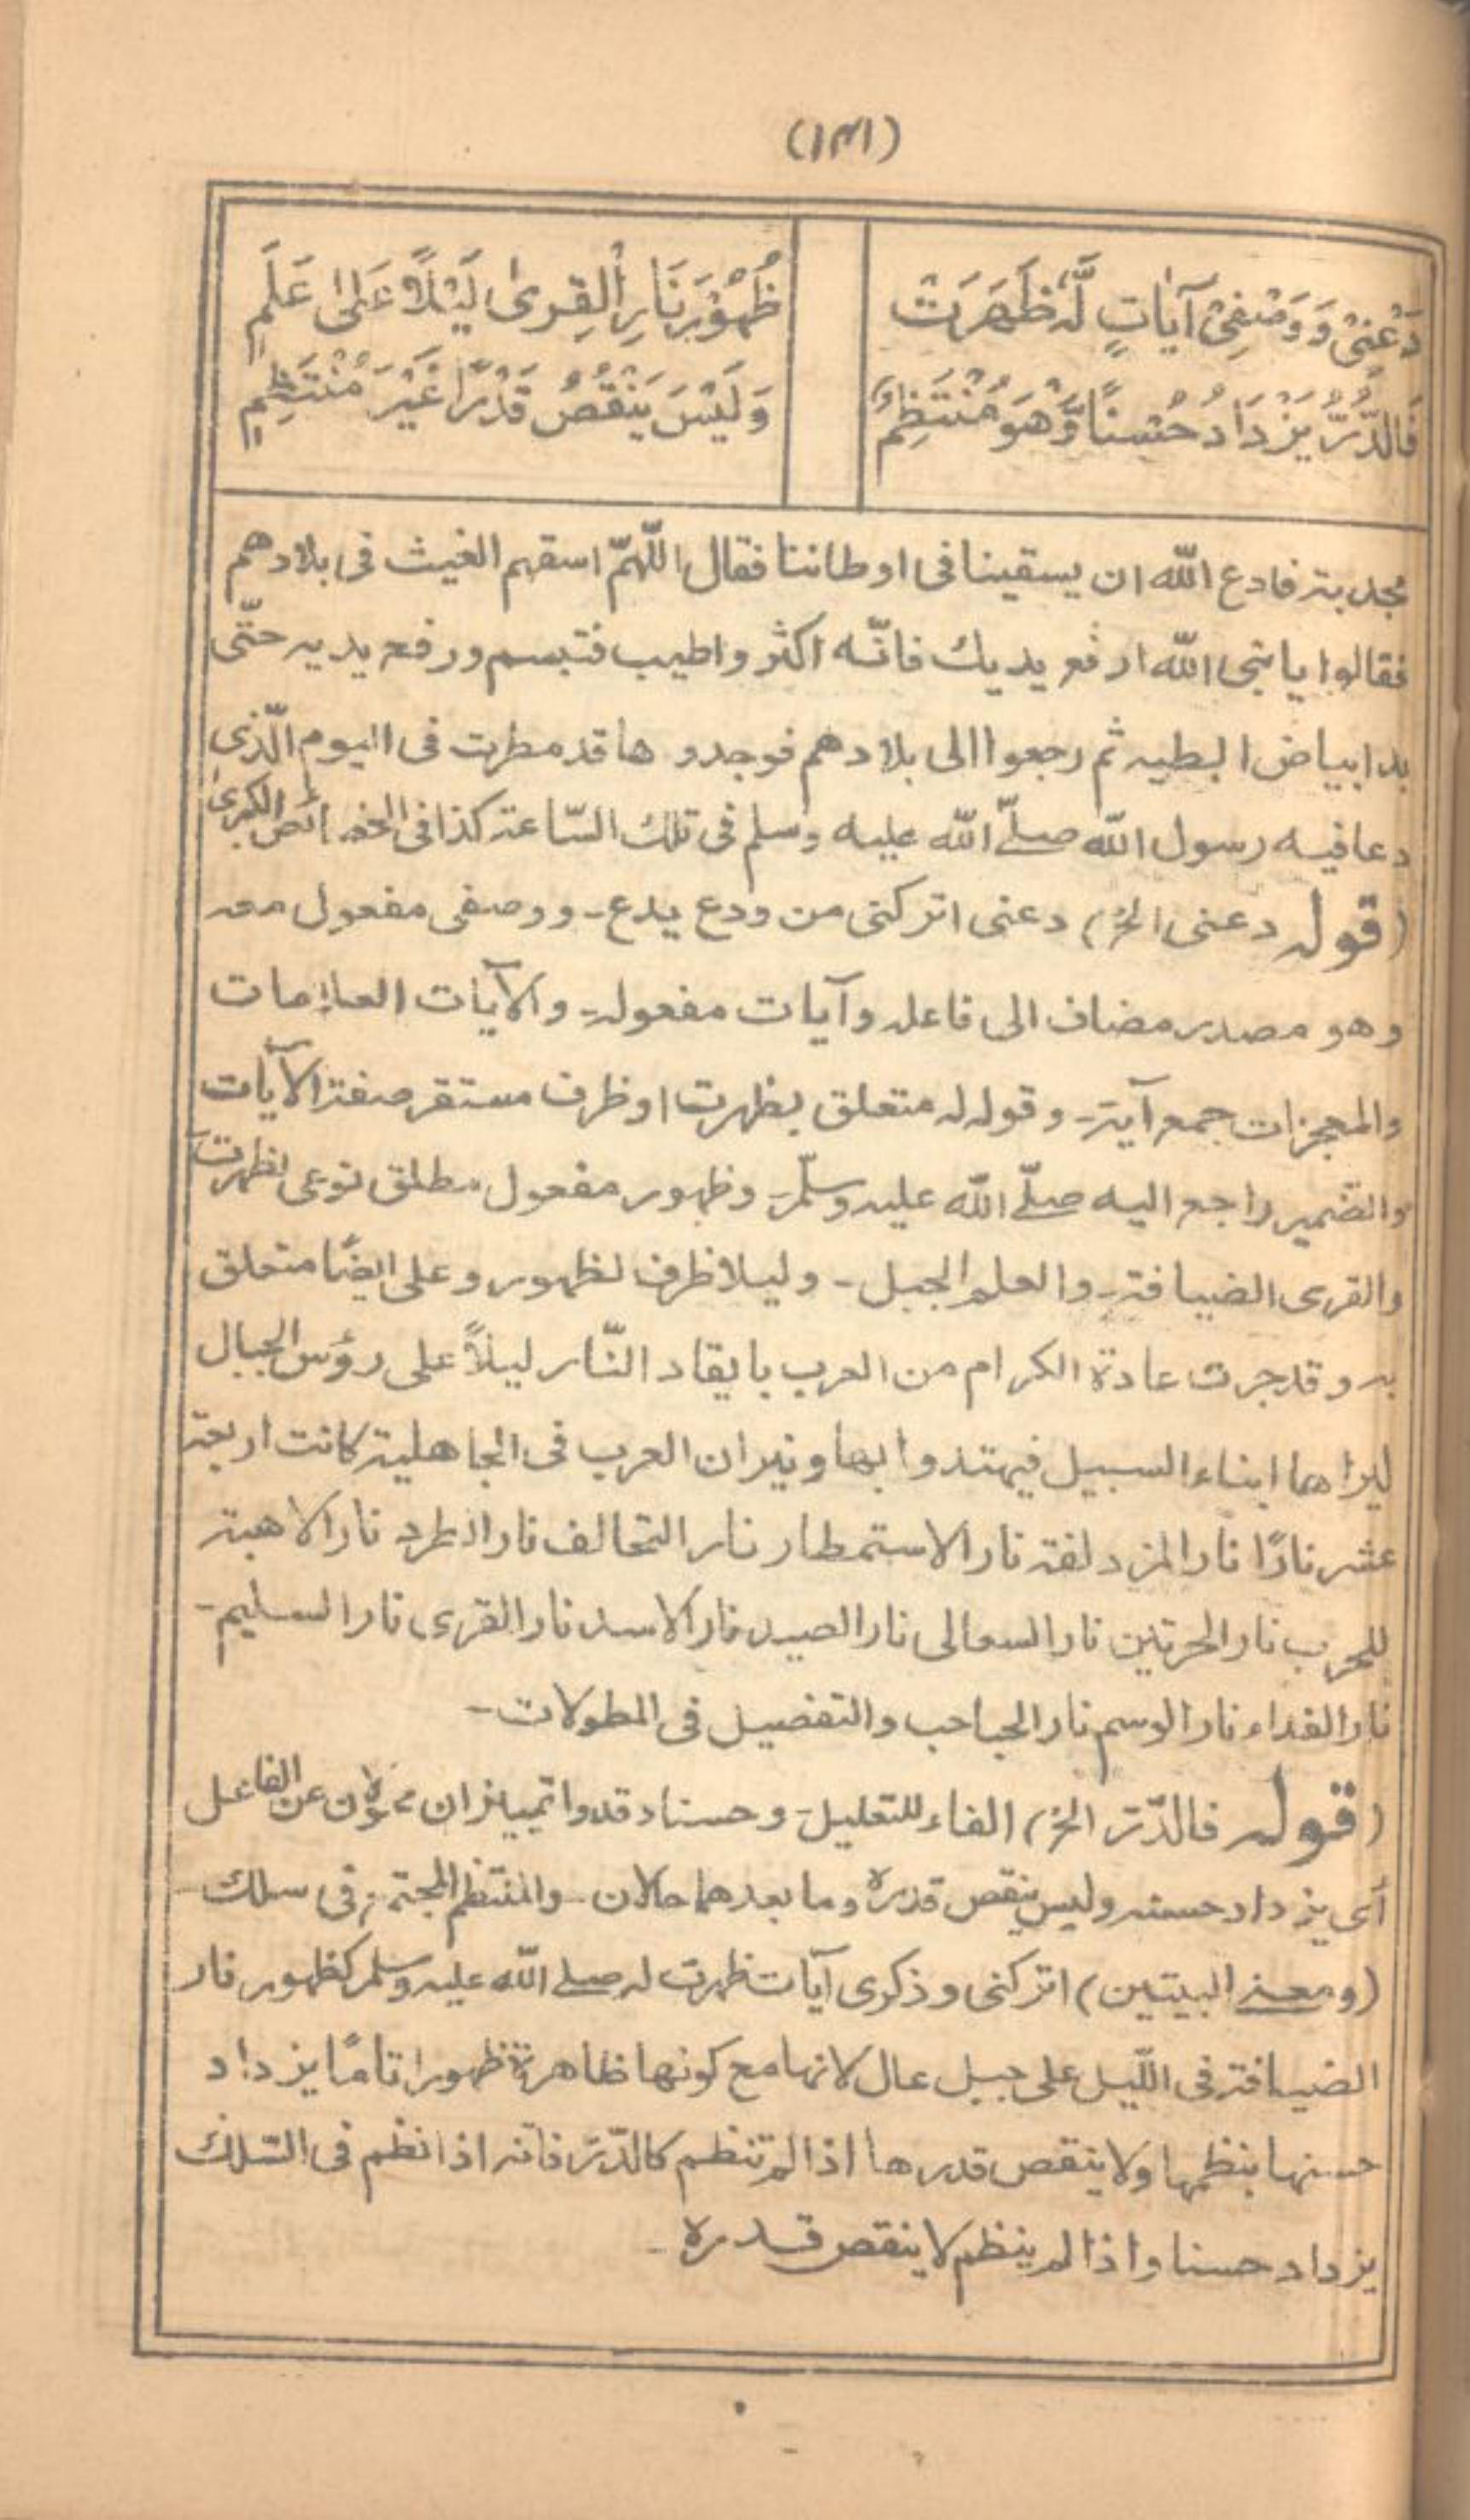 (١٣١)
دَعْنِيْ وَوَصْفِيْ آيَاتٍ لَّهٗ ظَهَرَتْ ظُهُوْرَ نَارِ الْقِرىٰ لَيْلًا عَلىٰ عَلَمٍ
فَالدُّرُّ يَزْدَادُ حُسْنًا وَّهُوَ مُنْتَظِمٌ وَلَيْسَ يَنْقُصُ قَدْرًا غَيْرَ مُنْتَظِمٍ
مجدبة فادع الله ان يسقينا فى اوطاننا فقال اللّٰهمّ اسقهم الغيث فى بلادهم
فقالوا يا نبى الله ارفع يديك فانّه اكثر واطيب فتبسم ورفع يديه حتّى
بدا بياض ابطيه ثم رجعوا الى بلادهم فوجدو ها قد مطرت فى اليوم الّذى
دعا فيه رسول الله صلّى الله عليه وسلم فى تلك السّاعة كذا فى الخصائص الكبرىٰ
(قوله دعنى الخ) دعنى اتركنى من ودع يدع ـ ووصفى مفعول معه
وهو مصدر مضاف الى فاعله وآيات مفعوله ـ والآيات العلامات
والمعجزات جمع آية ـ وقوله له متعلق بظهرت او ظرف مستقر صفة الآيات
والضمير راجع اليه صلّى الله عليه وسلّم ـ وظهور مفعول مطلق نوعى لظهرت
والقرى الضيافة ـ والعلم الجبل ـ وليلا ظرف لظهور وعلى ايضًا متعلق
به وقد جرت عادة الكرام من العرب بايقاد النّار ليلاً على رؤس الجبال
ليراهما ابناء السبيل فيهتدوا بها ونيران العرب فى الجاهلية كانت اربعة
عشر نارًا نار المزدلفة نار الاستمطار نار التحالف نار الطرد نار الاهبة
للحرب نار الحرتين نار السعالى نار الصيد نار الاسد نار القرى نار السليم ـ
نار الفداء نار الوسم نار الحباحب والتفصيل فى المطولات ـ
(قوله فالدّرّ الخ) الفاء للتعليل ـ وحسنا وقدوا تمييزان محولان عن الفاعل
اى يزداد حسنه وليس ينقص قدره وما بعدهما حالان ـ والمنتظم المجتمع فى سلك ـ
(ومعنى البيتين) اتركنى وذكرى آيات ظهرت له صلى الله عليه وسلم كظهور نار
الضيافة فى اللّيل على جبل عال لانها مع كونها ظاهرة ظهورا تامًا يزداد
حسنها بنظمها ولا ينقص قدرها اذا لم تنظم كالدّرّ فانه اذا نظم فى السّلك
يزداد حسنا واذا لم ينظم لا ينقص قدره ـ